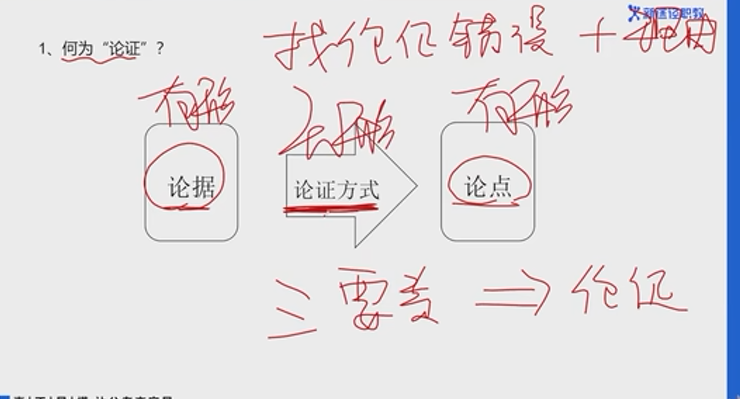 1、何为“论证”？ 找论证错误 + 理由
新途径职教
有形 无形 有形
论据 论证方式 论点
三要素 ⇒ 论证